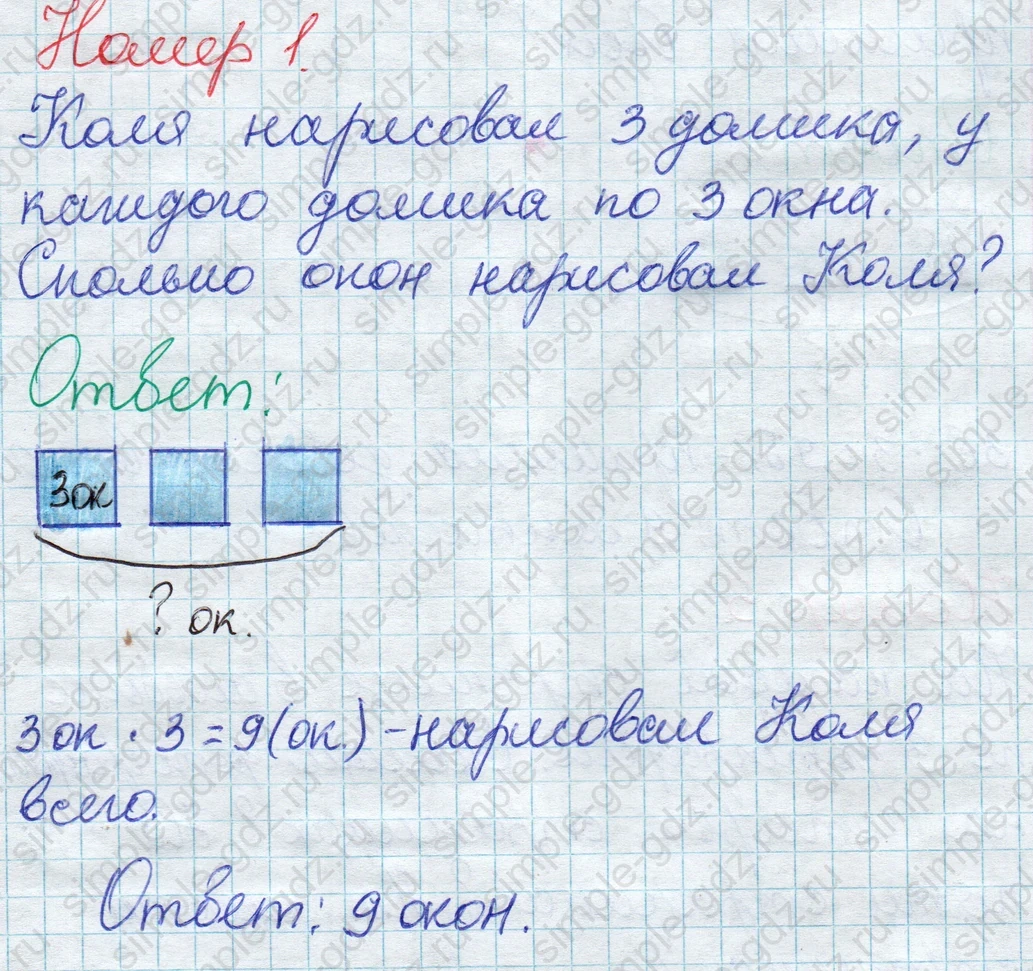 Номер 1.
Коля нарисовал 3 домика, у
каждого домика по 3 окна.
Сколько окон нарисовал Коля?
Ответ:
3ок
? ок.
3 ок · 3 = 9 (ок.) - нарисовал Коля
всего.
Ответ: 9 окон.
simple-gdz.ru